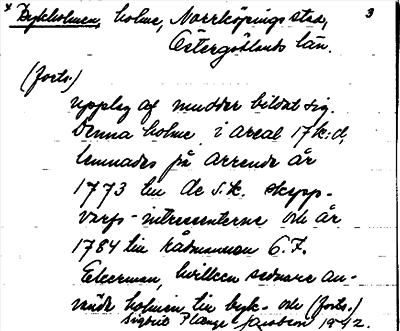 * Dykholmen, holme, Norrköpings stad, 3
Östergötlands län.
(forts.)
upplag af mudder bildat sig.
Denna holme, i areal 17 k:d,
lemnades på arrende år
1773 till de s.k. skepps-
varfs-intressenterne och år
1784 till rådmannen C.F.
Ekerman, hvilken sednare an-
vände holmen till byk- och (forts.)
Sigurd Planze Jacobson 1942.